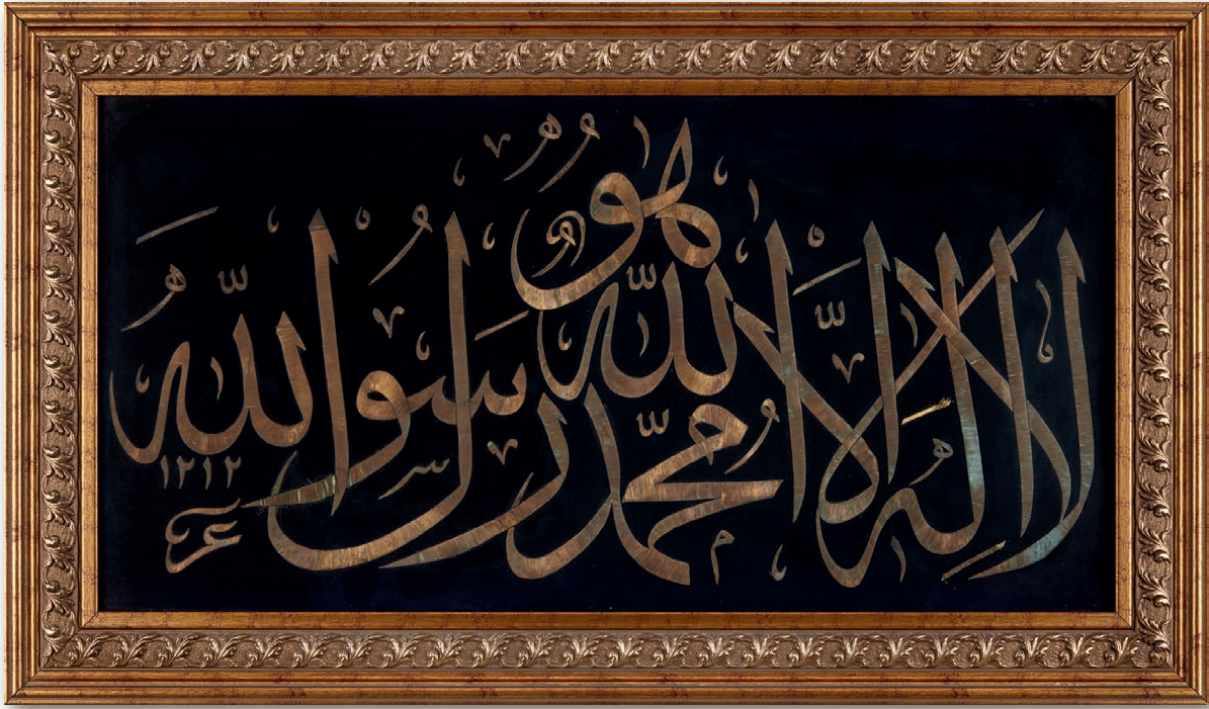 هو
لا اله الا الله محمد رسول الله
١٢١٢